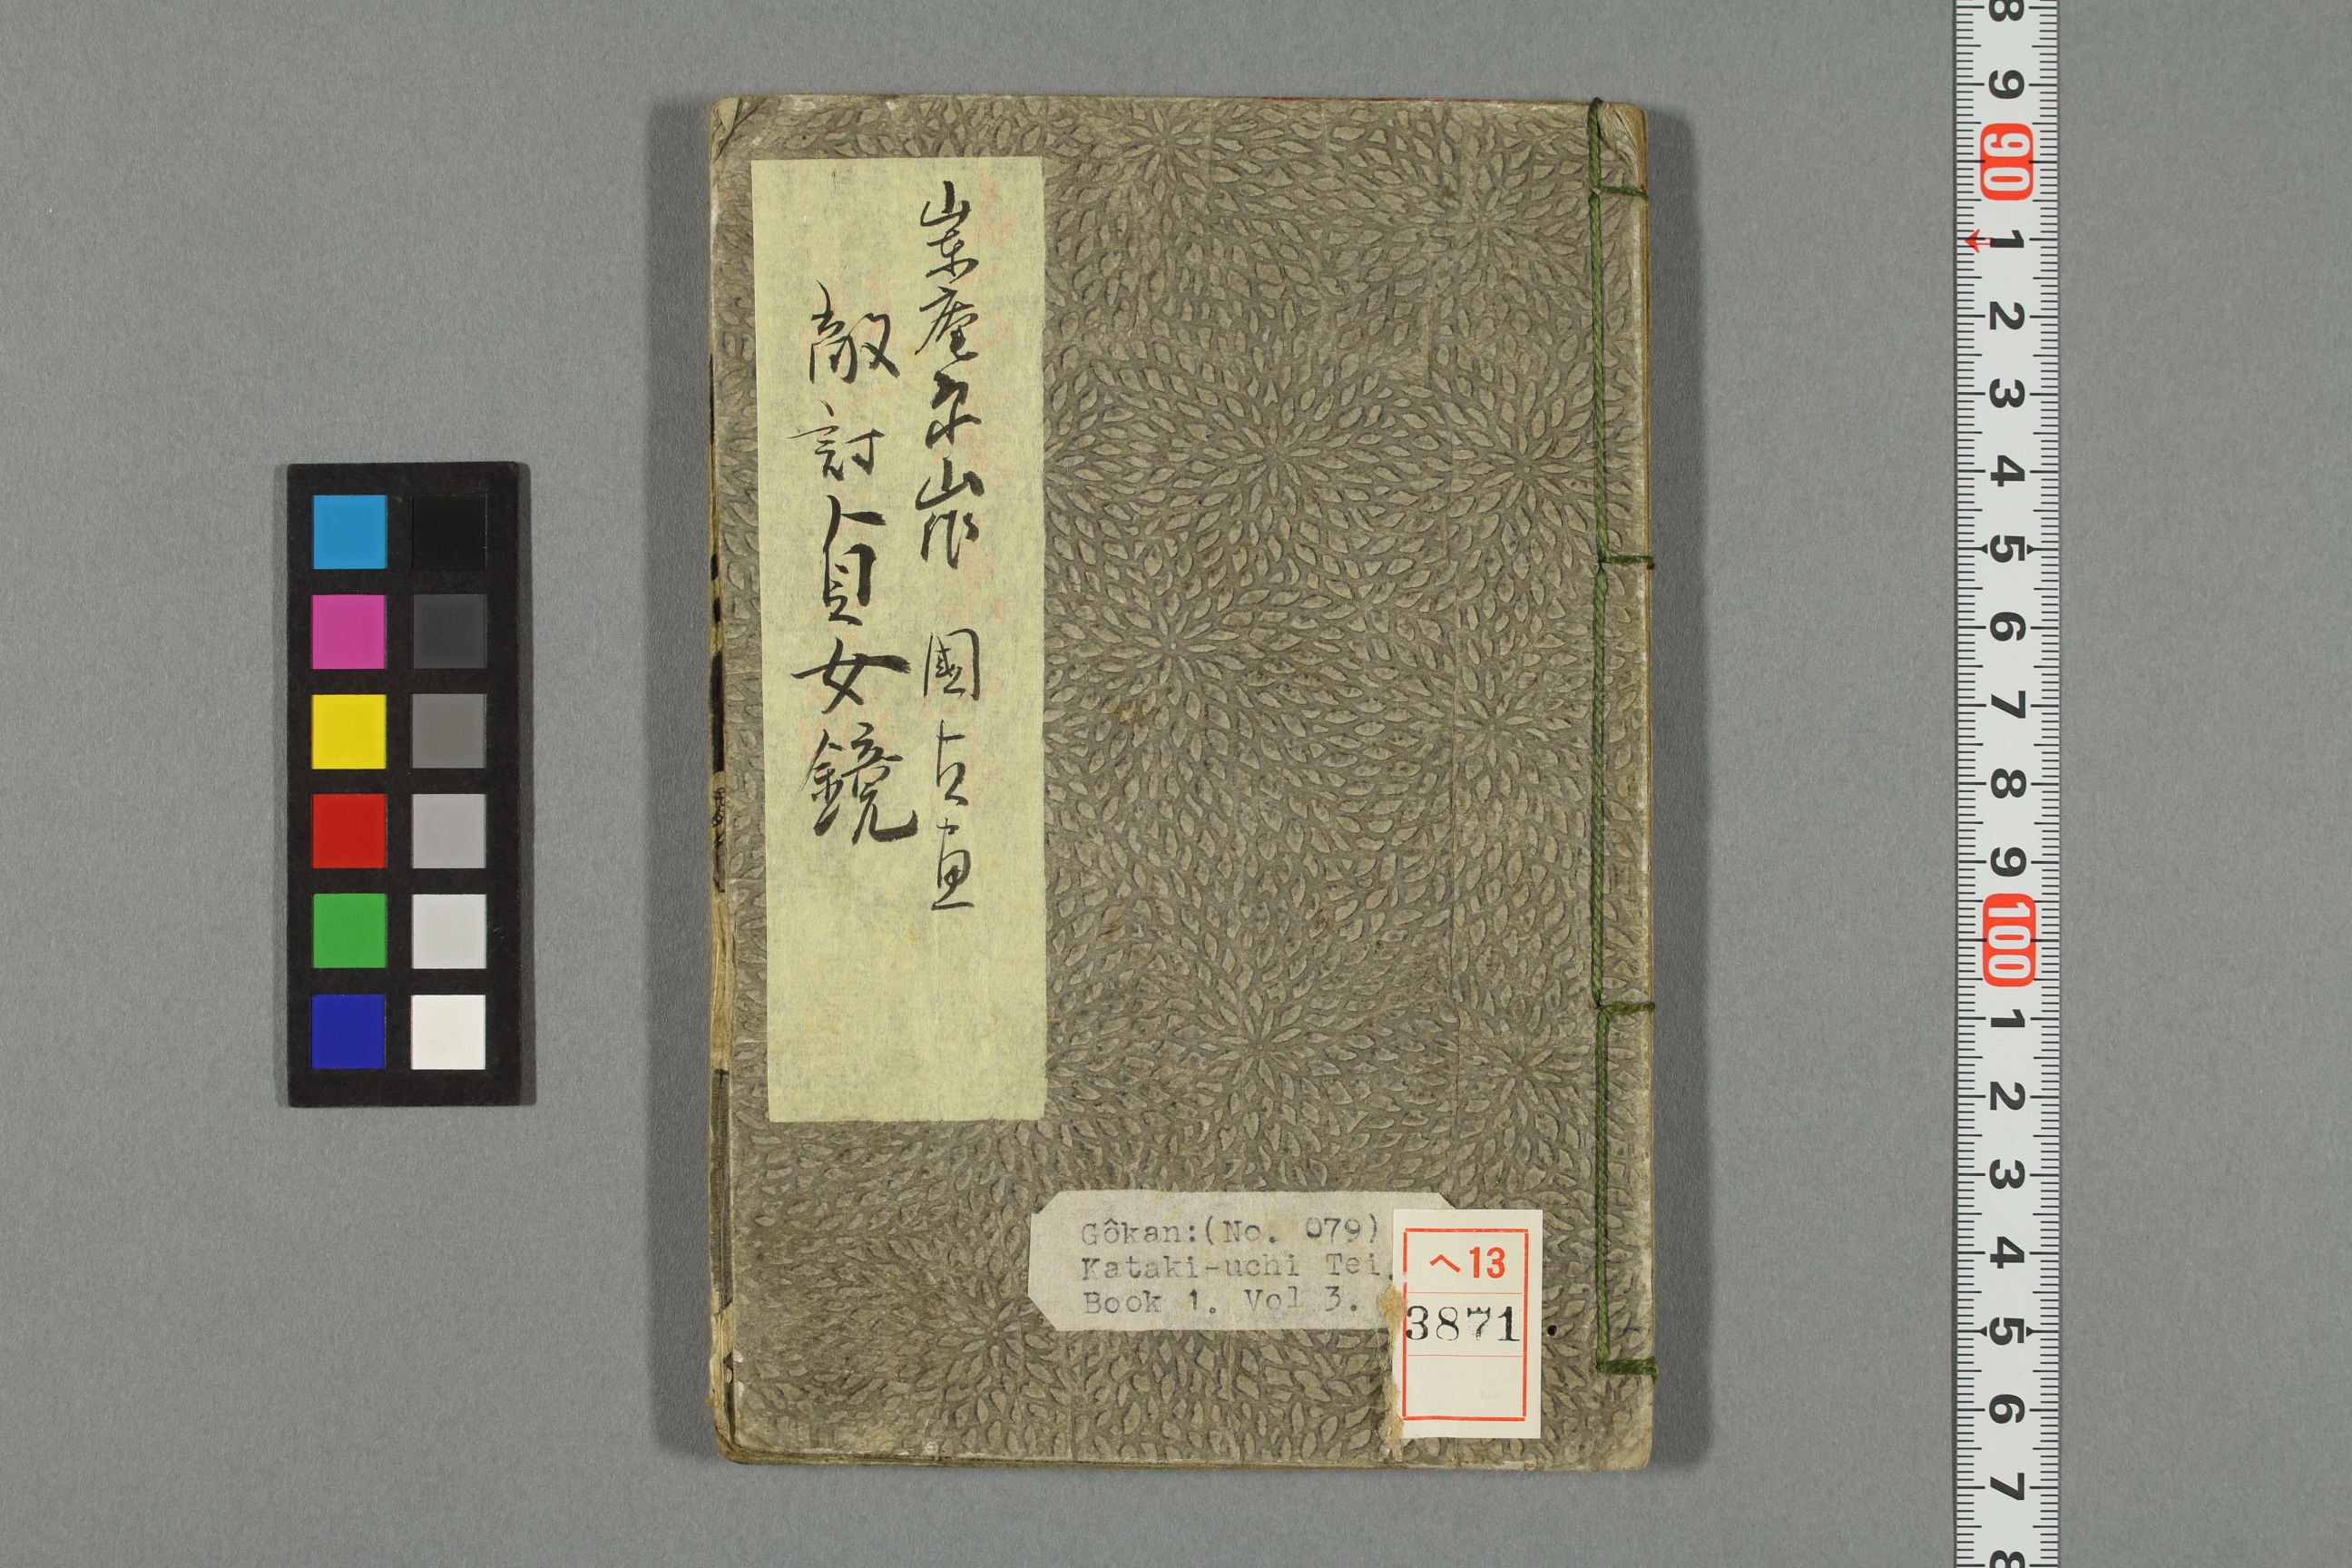 山東庵京山作　國貞畫
敵討貞女鏡
Gôkan:(No. 079)
Kataki-uchi Tei.
Book 1. Vol 3.
ヘ13
3871
8
9
90
1
2
3
4
5
6
7
8
9
100
1
2
3
4
5
6
7
8